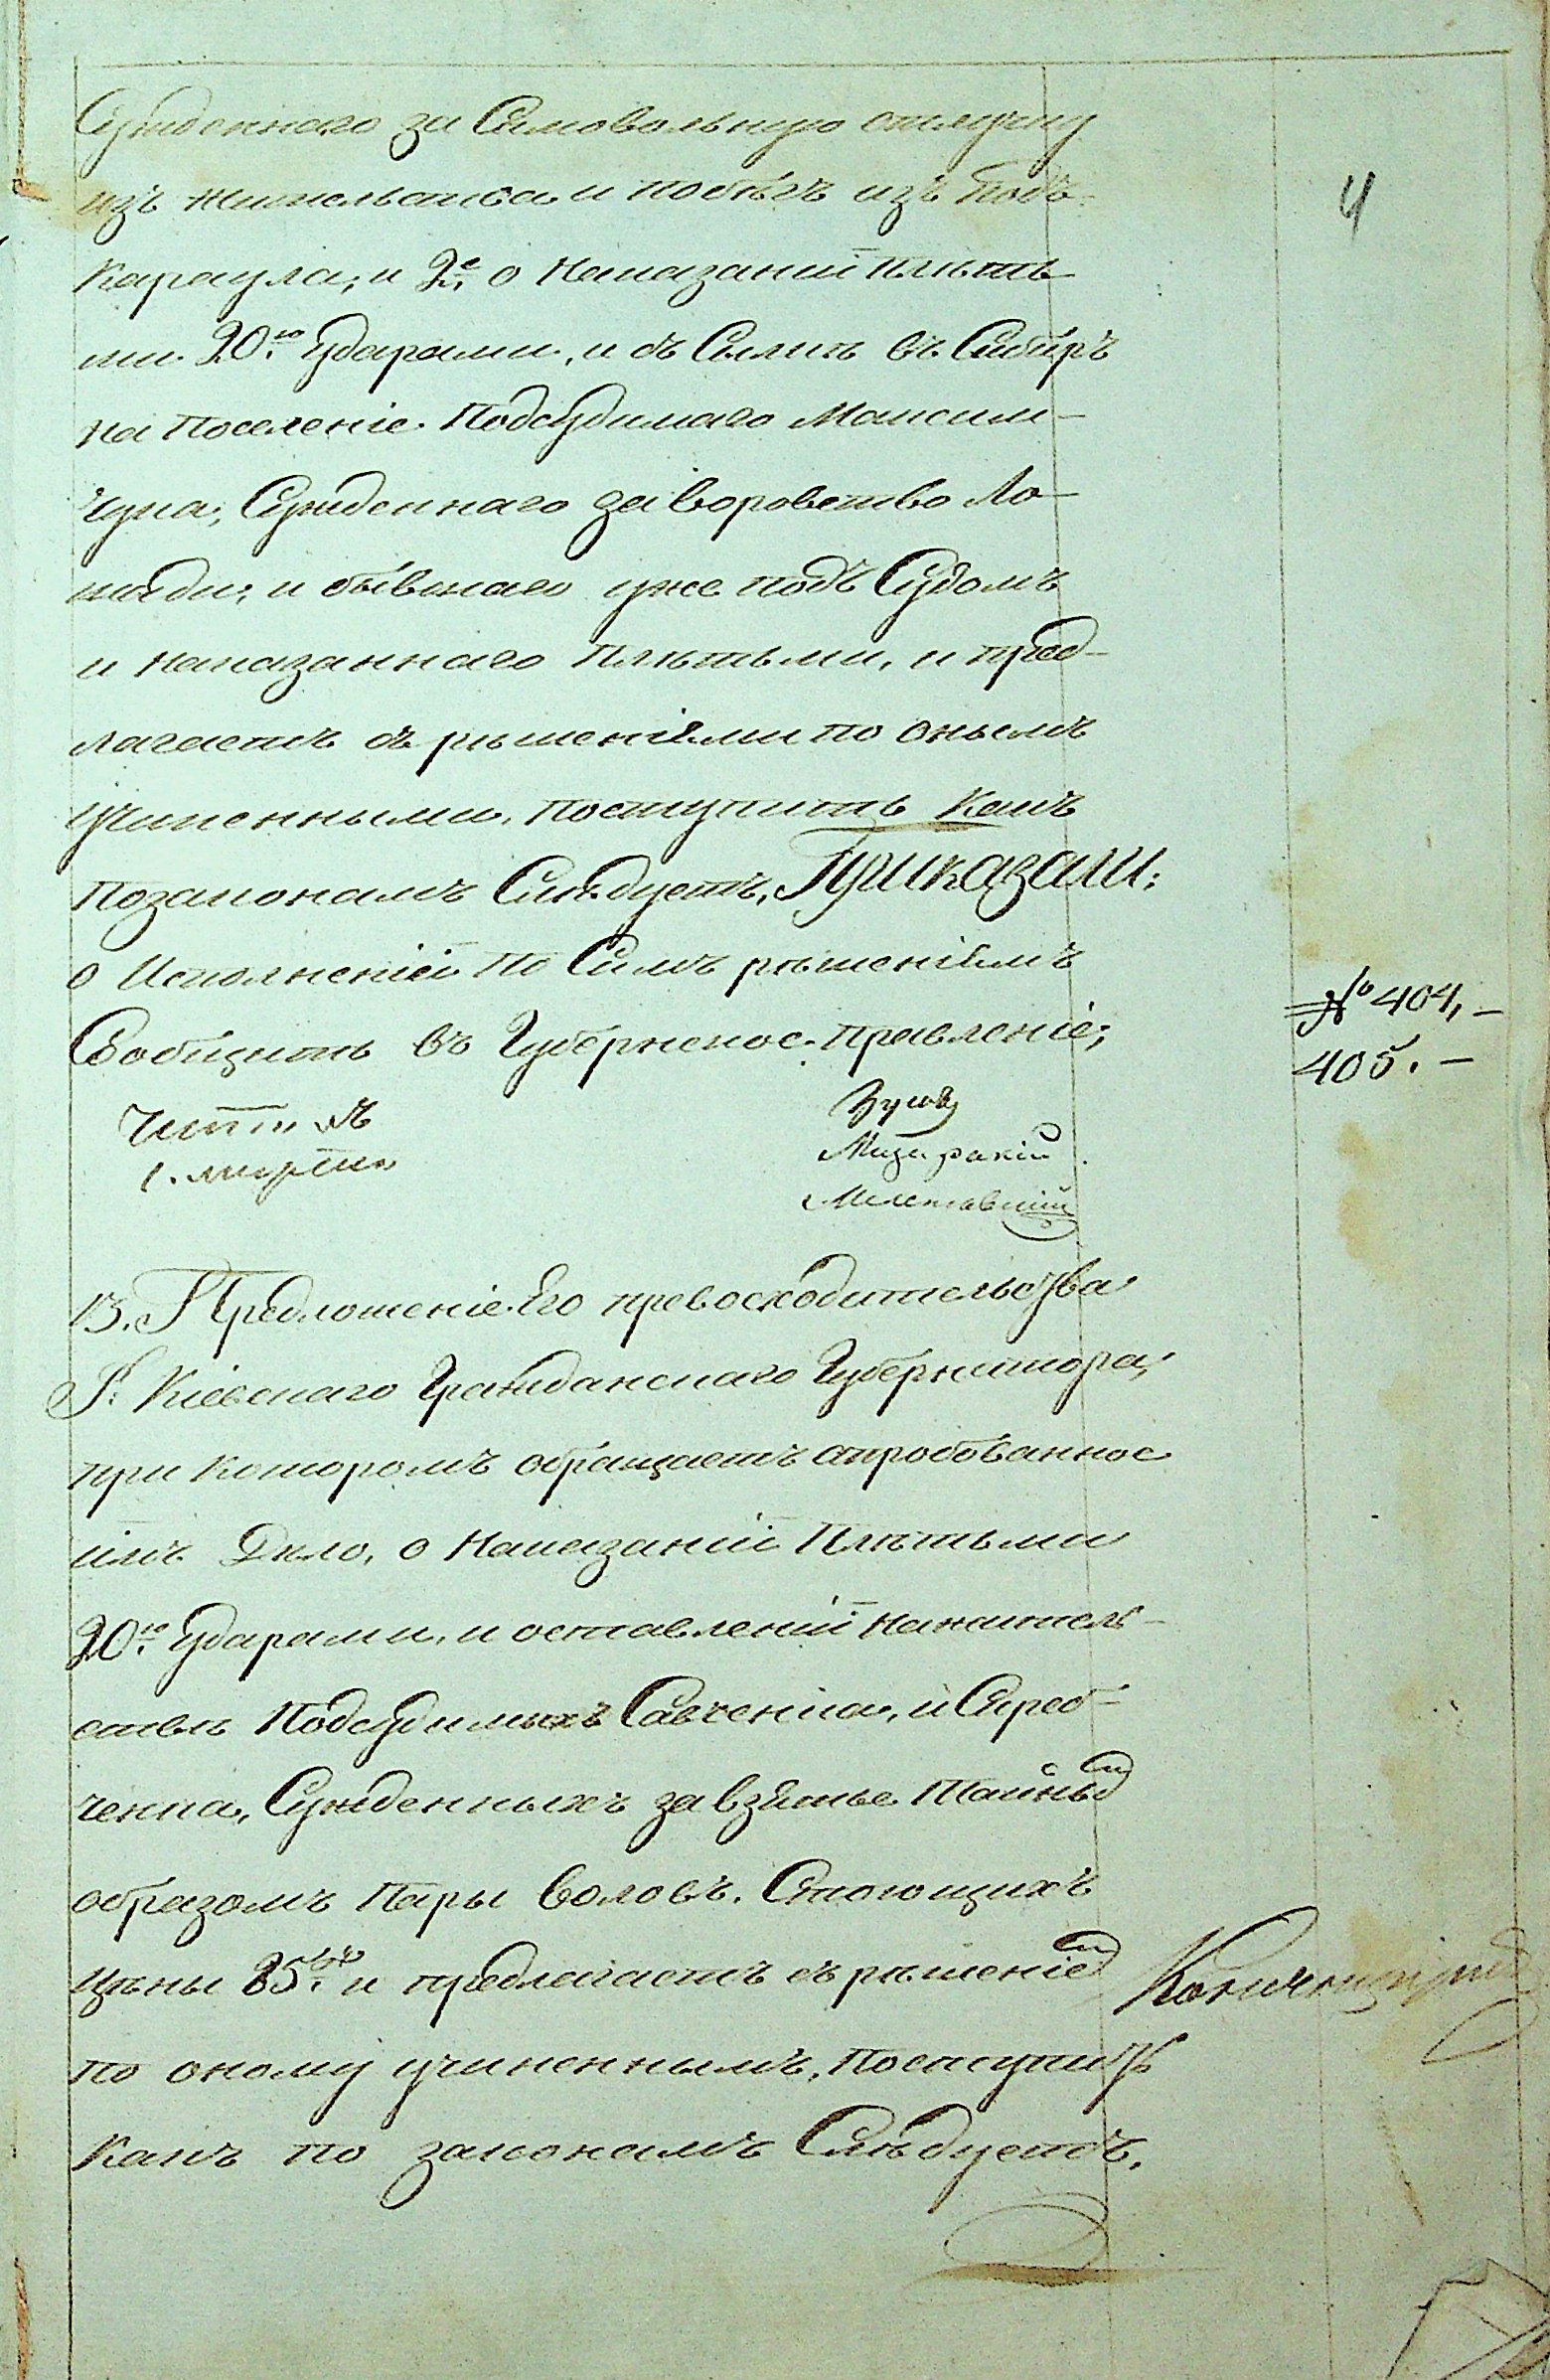 Сужденнаго за Самовольную отлучку
изъ жительства и побѣгъ изъ подъ
караула; и 2е о Наказаніи плѣть
ми 20ю ударами, и въ Силкѣ въ Сибирь
на Поселеніе. Подсудимаго Максим-
чука, Сужденнаго за воровство Ло-
шади; и бывшаго уже подъ Судомъ
и наказаннаго плѣтьми, и пред-
лагаетъ съ рѣшеніями по онымъ
учиненными, поступить какъ
позаконамъ Слѣдуетъ, Приказали:
о Исполненіи По Симъ рѣшеніямъ
Сообщить въ Губернское правленіе;
№ 404,-
405.-
13. Предложеніе Его превосходительства
Г: Кіевскаго Гражданскаго Губернатора,
при которомъ обращаетъ апробованное
имъ Дѣло, о Наказаніи Плѣтьми
20ю ударами, и оставленіи нажитель-
ствѣ Подсудимыхъ Савченка, и Сиред-
ченка, Сужденныхъ за взятье Тайнымъ
образомъ Пары воловъ. Стоющихъ
цѣны 85 и предлагаетъ съ рѣшеніемъ
по оному учиненнымъ, поступить
какъ по законамъ Слѣдуетъ,
4